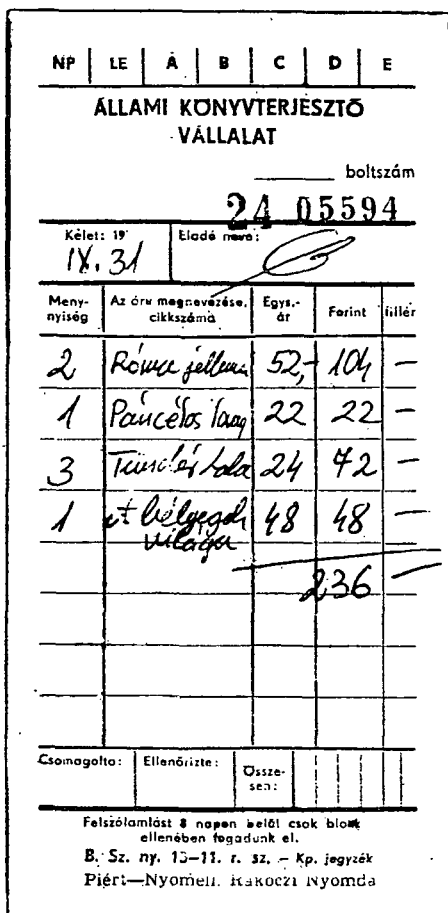 NP LE Á B C D E
ÁLLAMI KÖNYVTERJESZTŐ
VÁLLALAT
boltszám
24 05594
Kelet: 19 Eladó neve:
IX. 31
Meny-nyiség Az áru megnevezése, cikkszáma Egys.-ár Forint fillér
2 52,- 104 —
1 Páncélos lovag 22 22 —
3 Tündér Lala 24 72 —
1 A bélyegek 48 48 —
világa
236 —
Csomagolta: Ellenőrizte: Össze-sen:
Felszólamlást 8 napon belül csak blokk
ellenében fogadunk el.
B. Sz. ny. 13-11. r. sz. – Kp. jegyzék
Piért—Nyomell. Rákóczi Nyomda